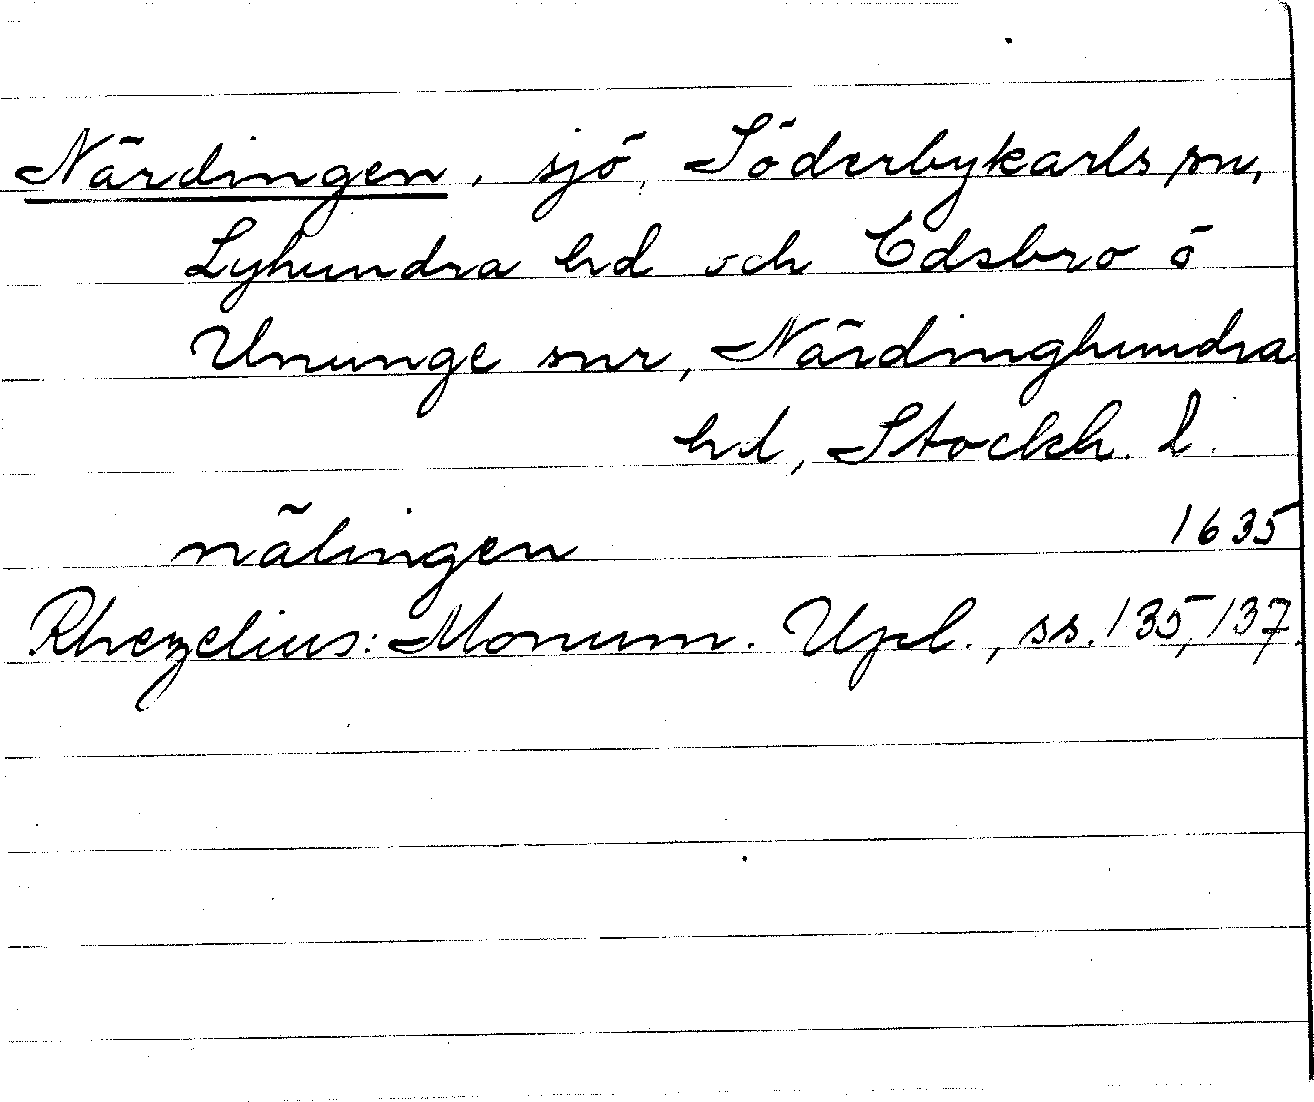 Närdingen, sjö, Söderbykarls sn,
Lyhundra hd och Edsbro ö
Ununge snr, Närdinghundra
hd, Stockh. l.
nälingen 1635
Rhezelius: Monum. Upl., ss. 135, 137.